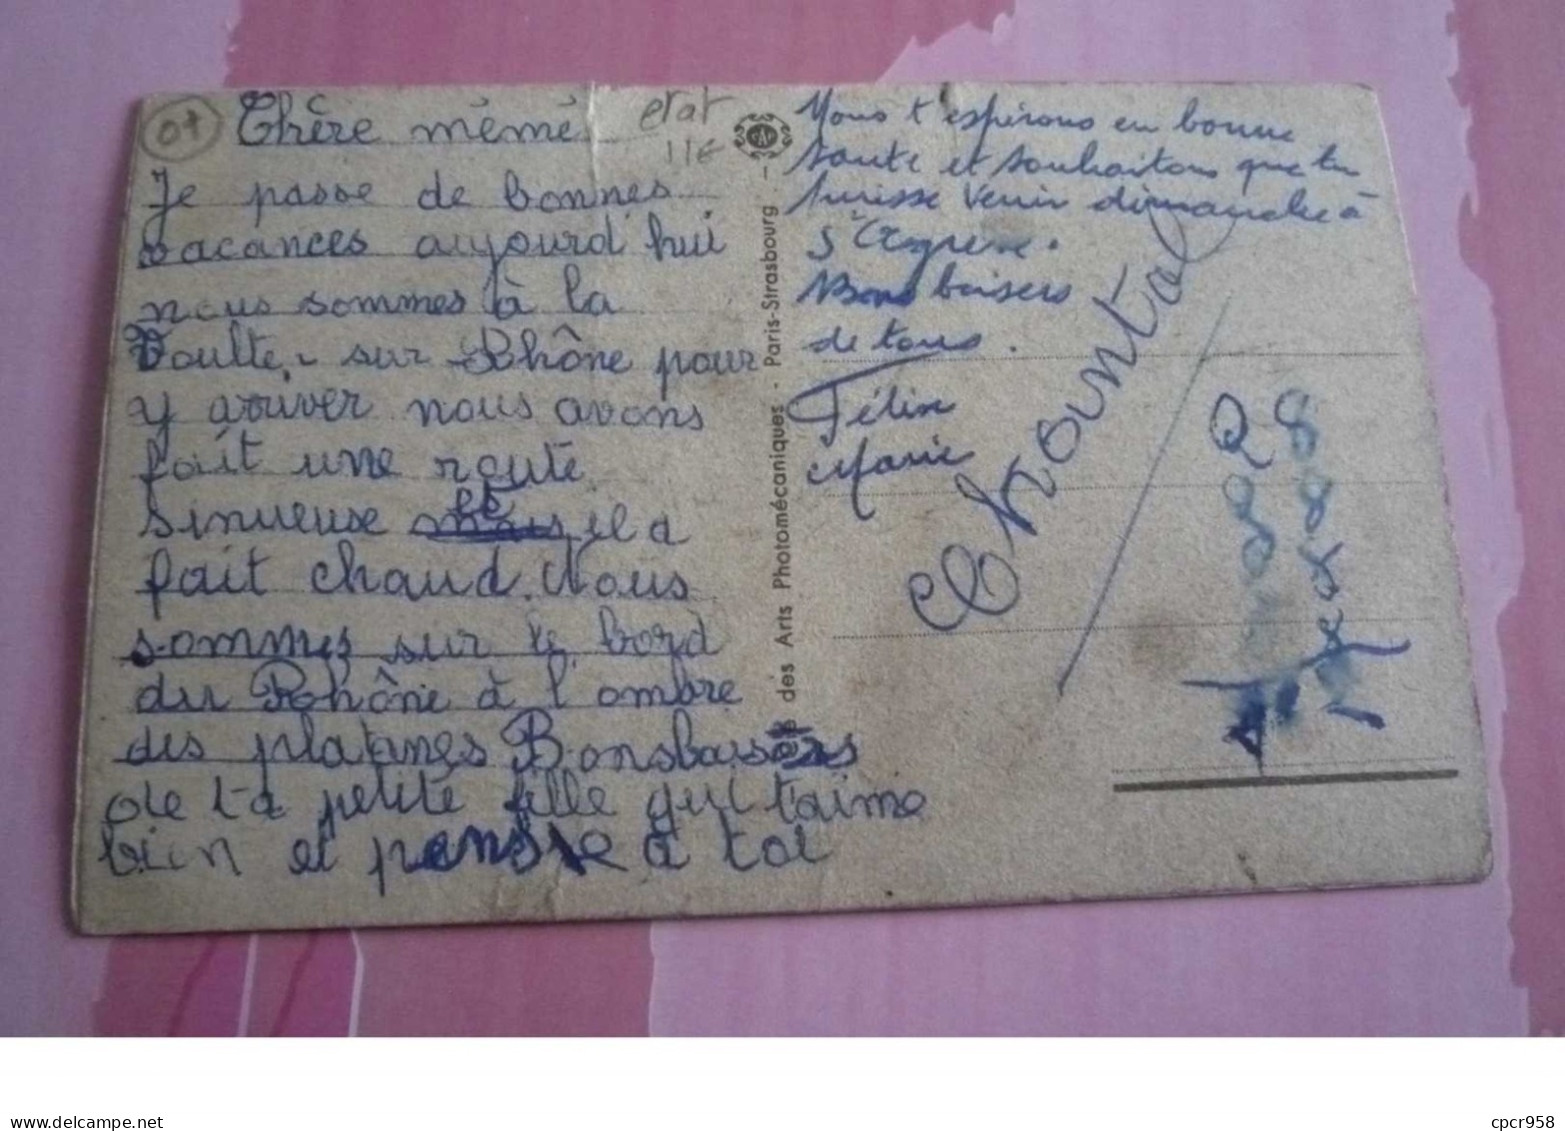 07
Chère mémé
etat
11€
Je passe de bonnes
vacances aujourd'hui
nous sommes à la
Voulte-sur-Rhône pour
y arriver nous avons
fait une route
sinueuse et il a
fait chaud. Nous
sommes sur le bord
du Rhône à l'ombre
des platanes Bons baisers
de ta petite fille qui t'aime
bien et pense à toi
des Arts Photomécaniques - Paris-Strasbourg -
Nous t'espérons en bonne
santé et souhaitons que tu
puisse venir dimanche à
St Agrève.
Bons baisers
de tous.
Féline
Marie
Chrountal
www.delcampe.net
cpcr958